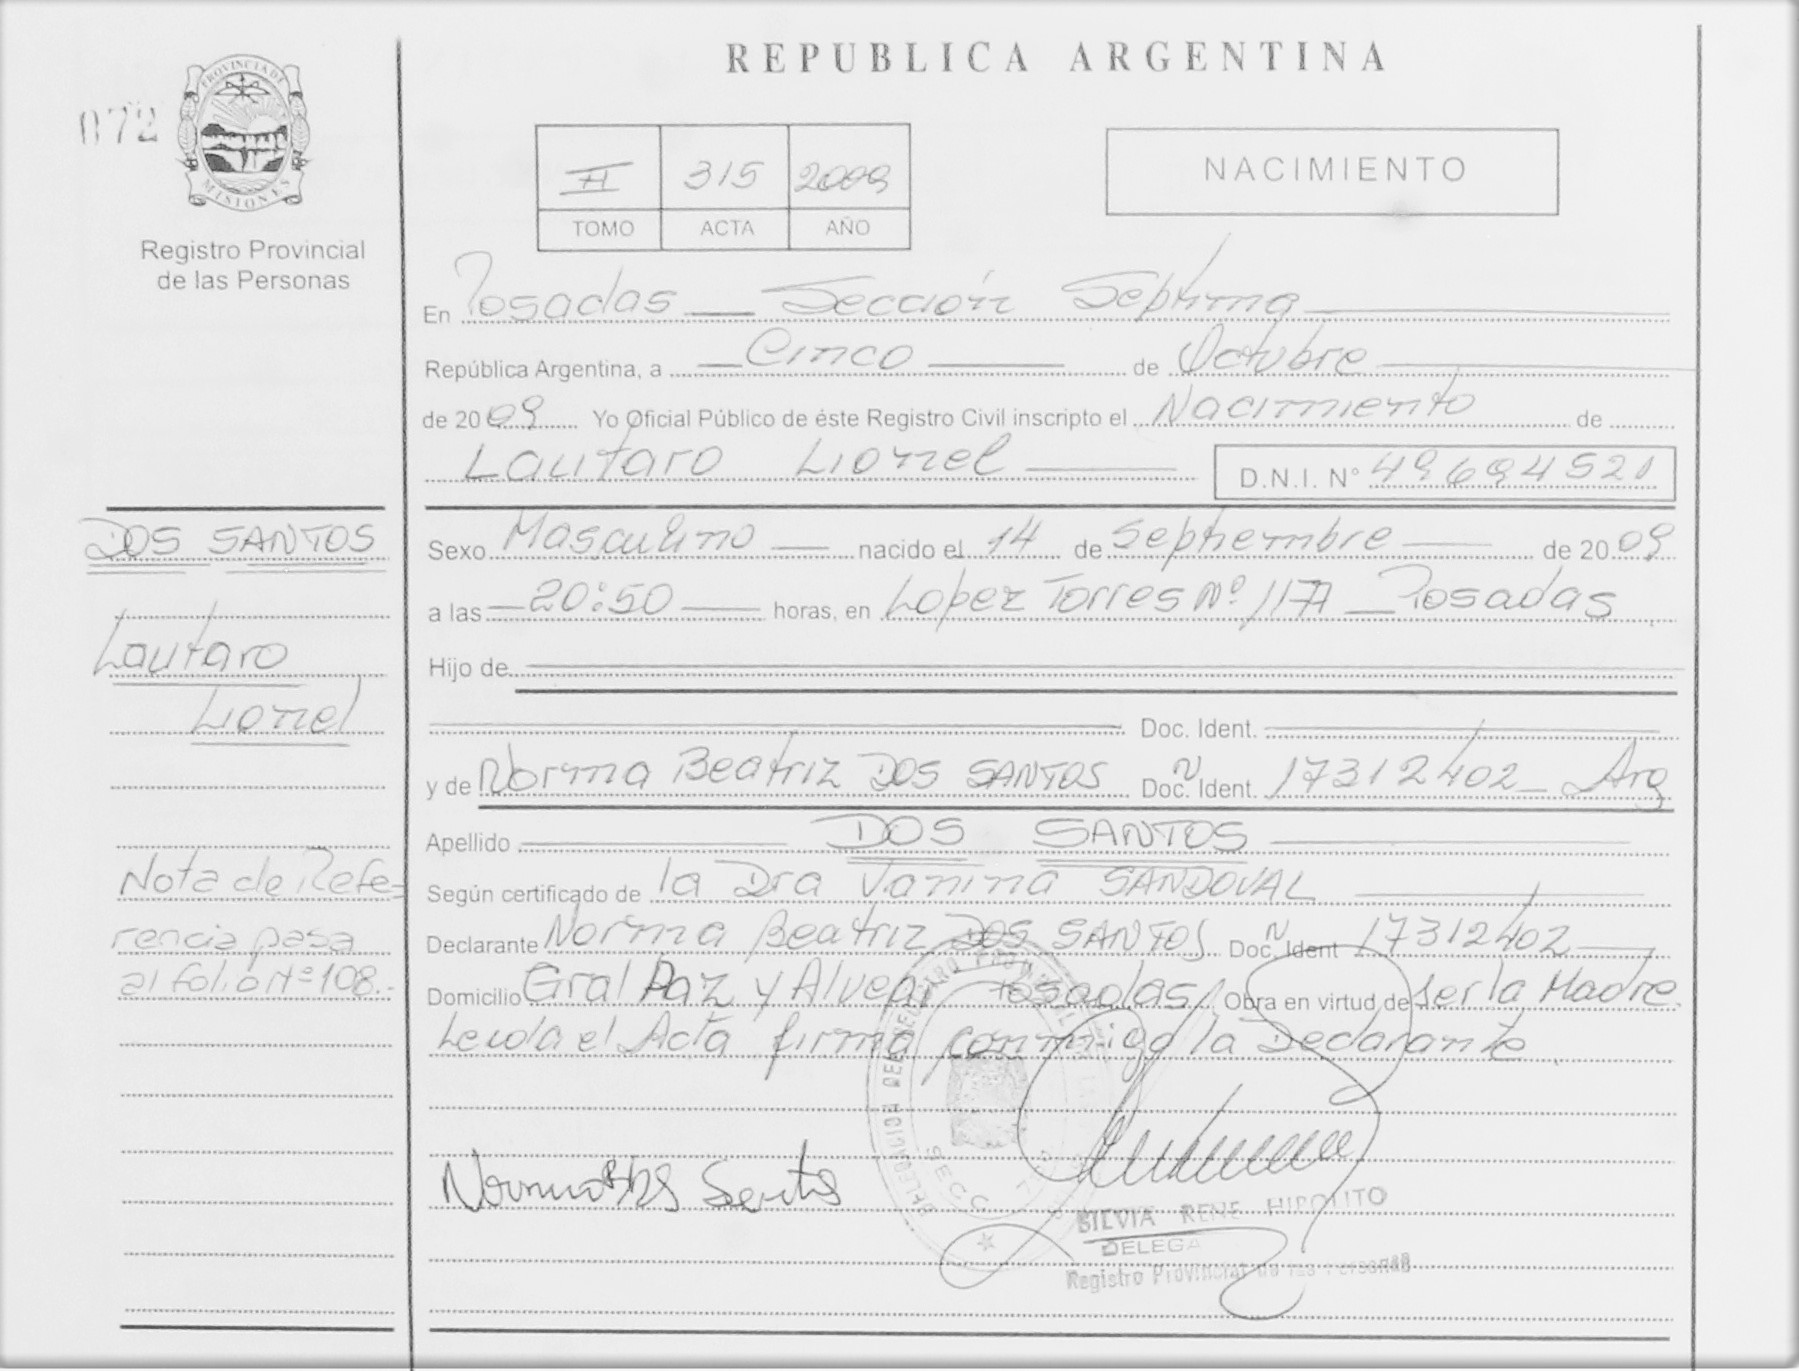 REPUBLICA ARGENTINA
072
PROVINCIA DE
MISIONES
Registro Provincial
de las Personas
II 315 2009
TOMO ACTA AÑO
NACIMIENTO
En Posadas — Sección Septima
República Argentina, a — Cinco — de Octubre
de 2009 Yo Oficial Público de éste Registro Civil inscripto el Nacimiento de
Lautaro Lionel — D.N.I. N° 49694520
Sexo Masculino — nacido el 14 de Septiembre — de 2009
a las — 20:50 — horas, en Lopez Torres Nº 1177 — Posadas
Hijo de
Doc. Ident.
y de Norma Beatriz DOS SANTOS Doc. N Ident. 17312402 — Arg
Apellido DOS SANTOS
Según certificado de la Dra Vanina SANDOVAL
Declarante Norma Beatriz DOS SANTOS Doc. N Ident 17312402
Domicilio Gral Paz y Alvear Posadas Obra en virtud de ser la Madre.
Leida el Acta firma conmigo la Declarante
DOS SANTOS
Lautaro
Lionel
Nota de Refe=
rencia pasa
al folio Nº 108.-
Norma B Dos Santos
SECC.
SILVIA RENE HIPOLITO
DELEGA
Registro Provincial de las Personas